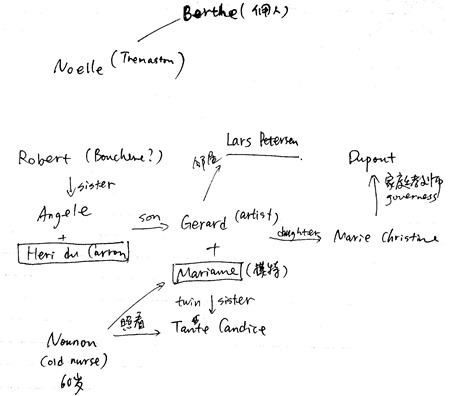 Berthe(佣人)
Noelle (Tremaston)
Lars Petersen
Robert (Bouchere?)
Dupont
sister
家庭教师
governess
Angele
son
Gerard (artist)
daughter
Marie Christine
+
+
Heri du Carron
Mariame (模特)
twin sister
照看
Tante Candice
Nounon
(old nurse)
60岁